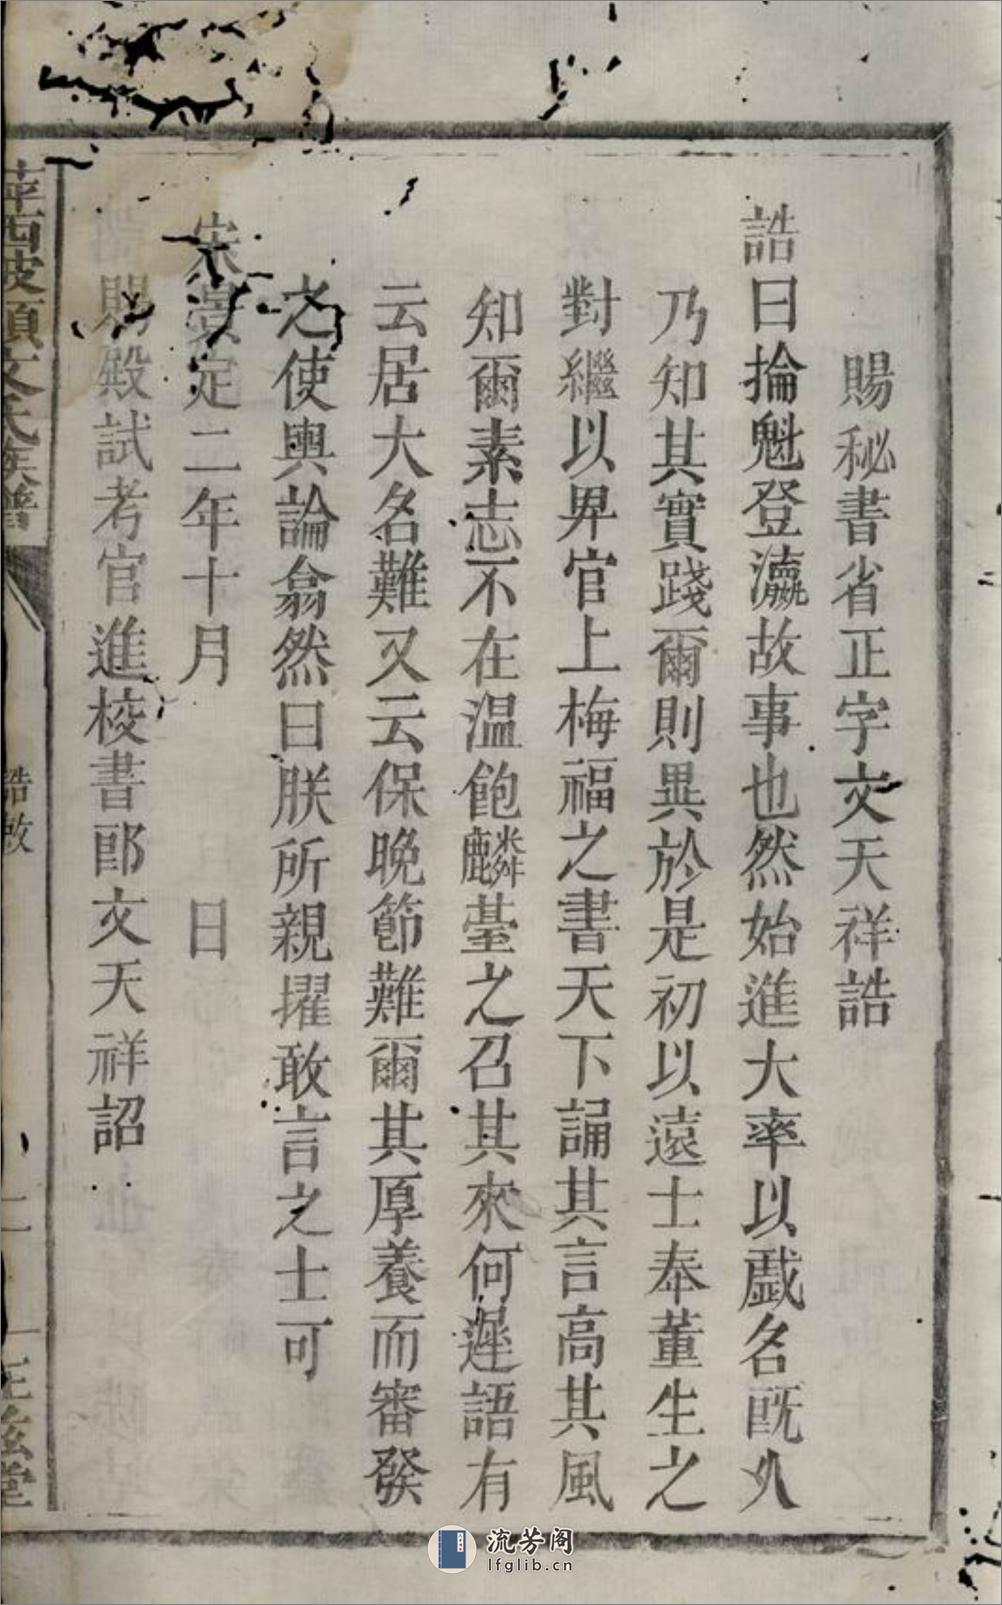 賜秘書省正字文天祥誥
誥曰掄魁登瀛故事也然始進大率以戲名旣久
乃知其實踐爾則異於是初以遠士奉董生之
對繼以畀官上梅福之書天下誦其言高其風
知爾素志不在温飽麟臺之召其來何遲語有
云居大名難又云保晚節難爾其厚養而審發
之使輿論翕然曰朕所親擢敢言之士可
宋景定二年十月　日
賜殿試考官進校書郎文天祥詔
萍西坡頭文氏族譜
誥敕
二
正氣堂
流芳阁
lfglib.cn